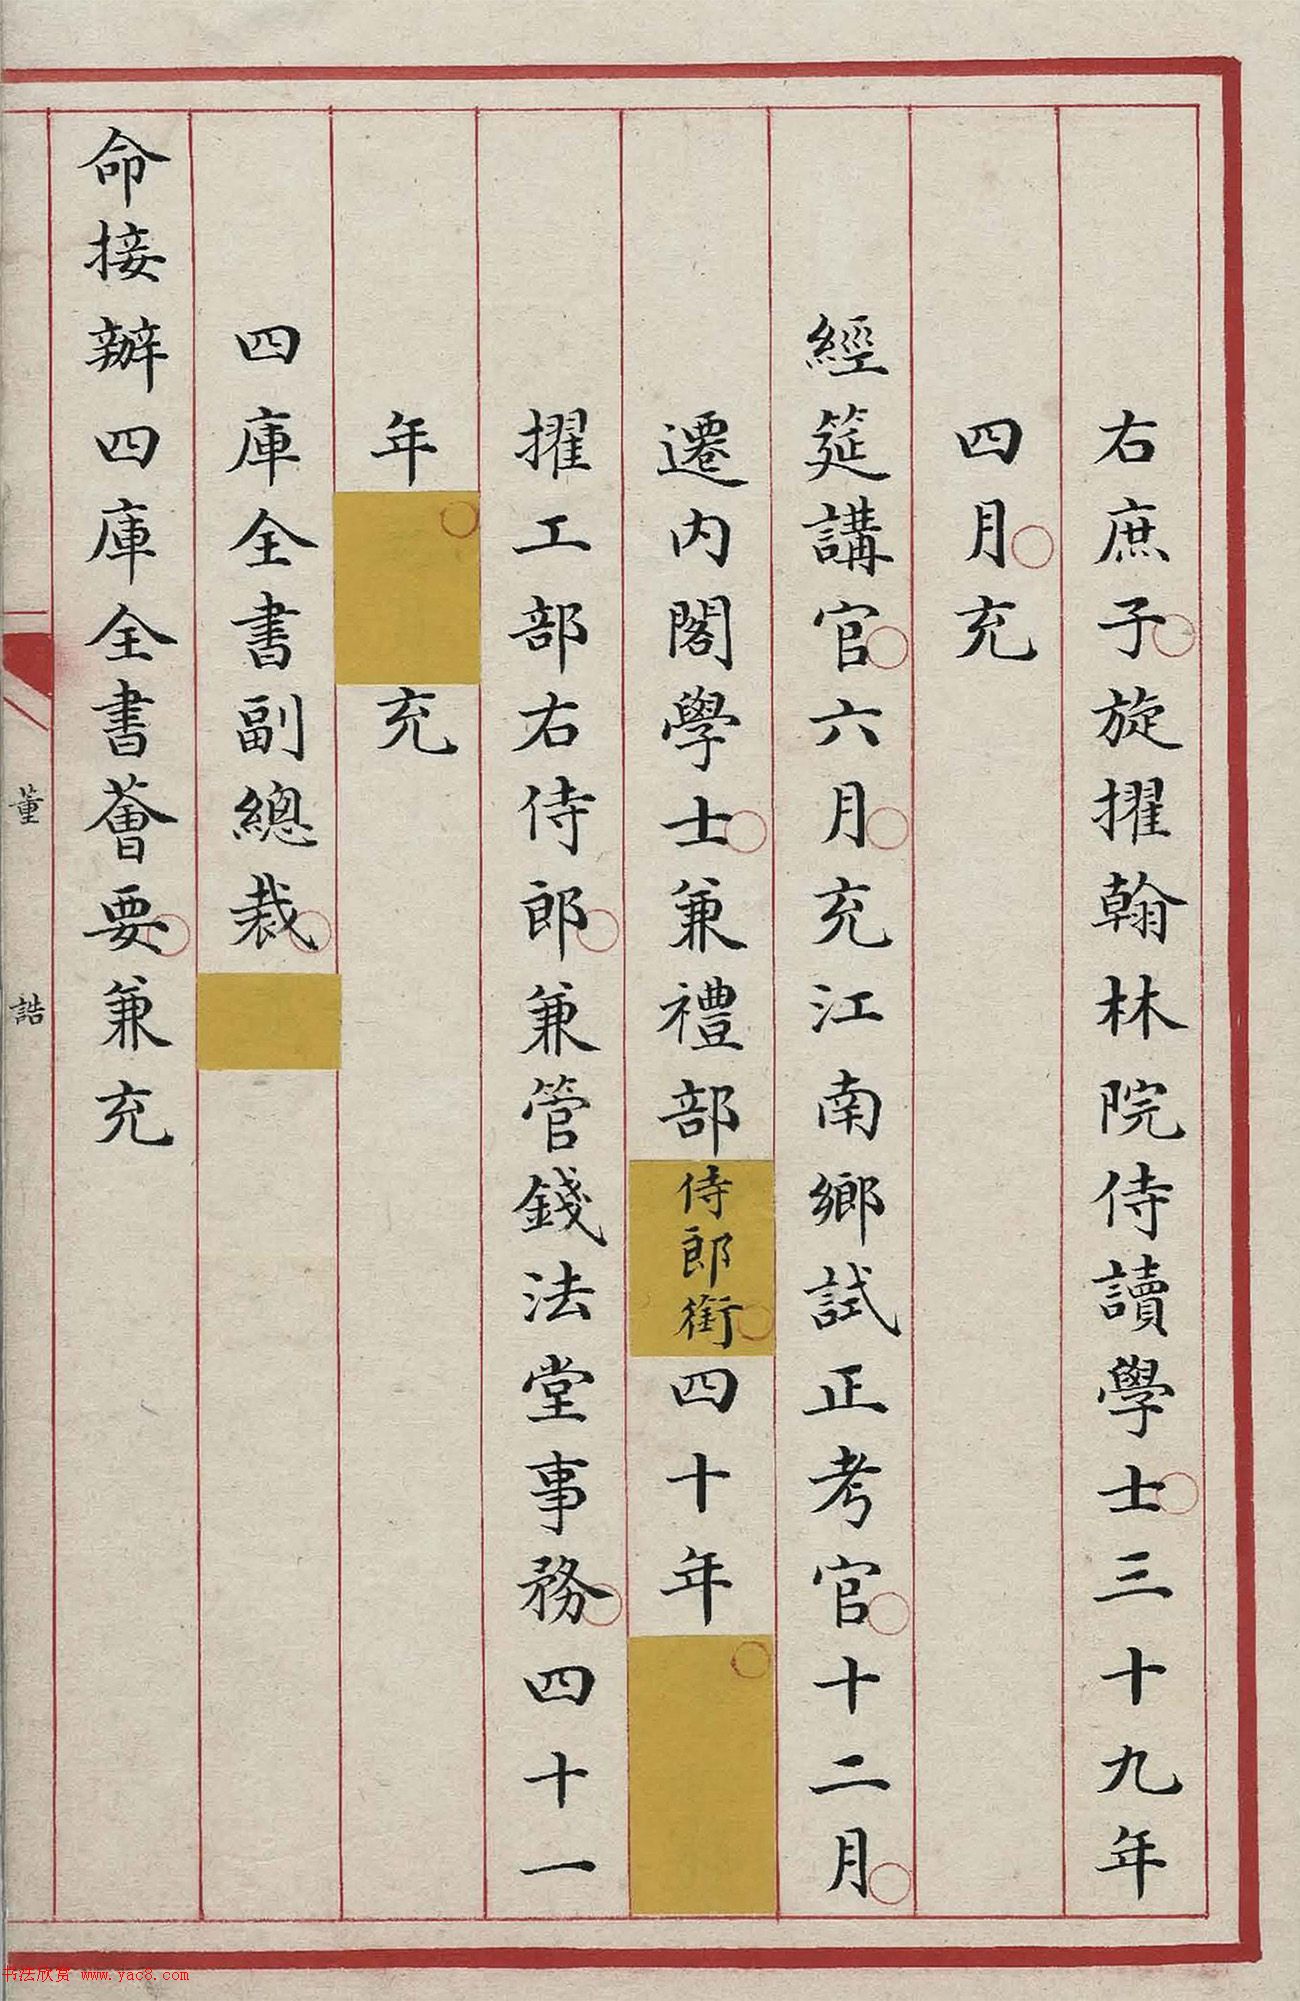 右庶子旋擢翰林院侍讀學士三十九年
四月充
經筵講官六月充江南鄉試正考官十二月
遷内閣學士兼禮部侍郎銜四十年
擢工部右侍郎兼管錢法堂事務四十一
年充
四庫全書副總裁
命接辦四庫全書薈要兼充
董誥
书法欣赏 www.yac8.com